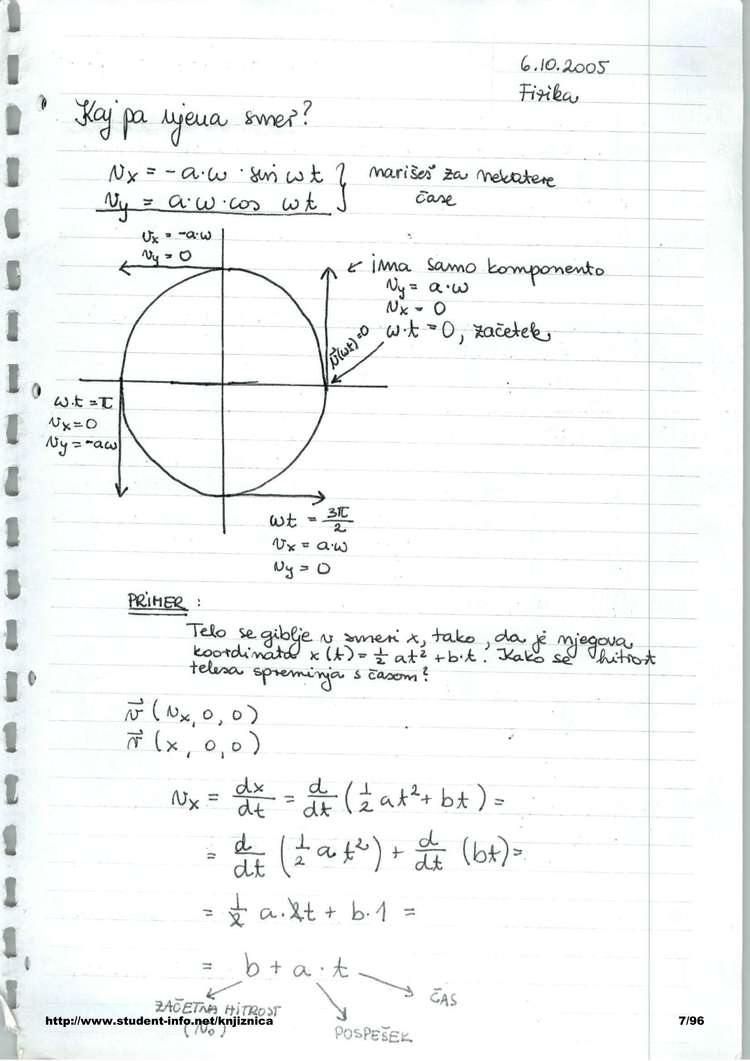 6.10.2005
Fizika
Kaj pa njena smer?
vx = -a·ω · sin ωt } narišeš za nekatere
vy = a·ω·cos ωt   čase
vx = -a·ω
vy = 0
← ima samo komponento
vy = a·ω
vx = 0
ω·t = 0, začetek
v⃗(ωt)=0
ω·t = π
vx = 0
vy = -aω
ωt = 3π/2
vx = a·ω
vy = 0
PRIMER :
Telo se giblje v smeri x, tako, da je njegova
koordinata x(t) = 1/2 at² + b·t. Kako se hitrost
telesa spreminja s časom?
v⃗ (vx, 0, 0)
r⃗ (x, 0, 0)
vx = dx/dt = d/dt (1/2 at² + bt) =
= d/dt (1/2 at²) + d/dt (bt) =
= 1/2 a·2t + b·1 =
= b + a · t
ZAČETNA HITROST
(v₀)
POSPEŠEK
ČAS
http://www.student-info.net/knjiznica
7/96